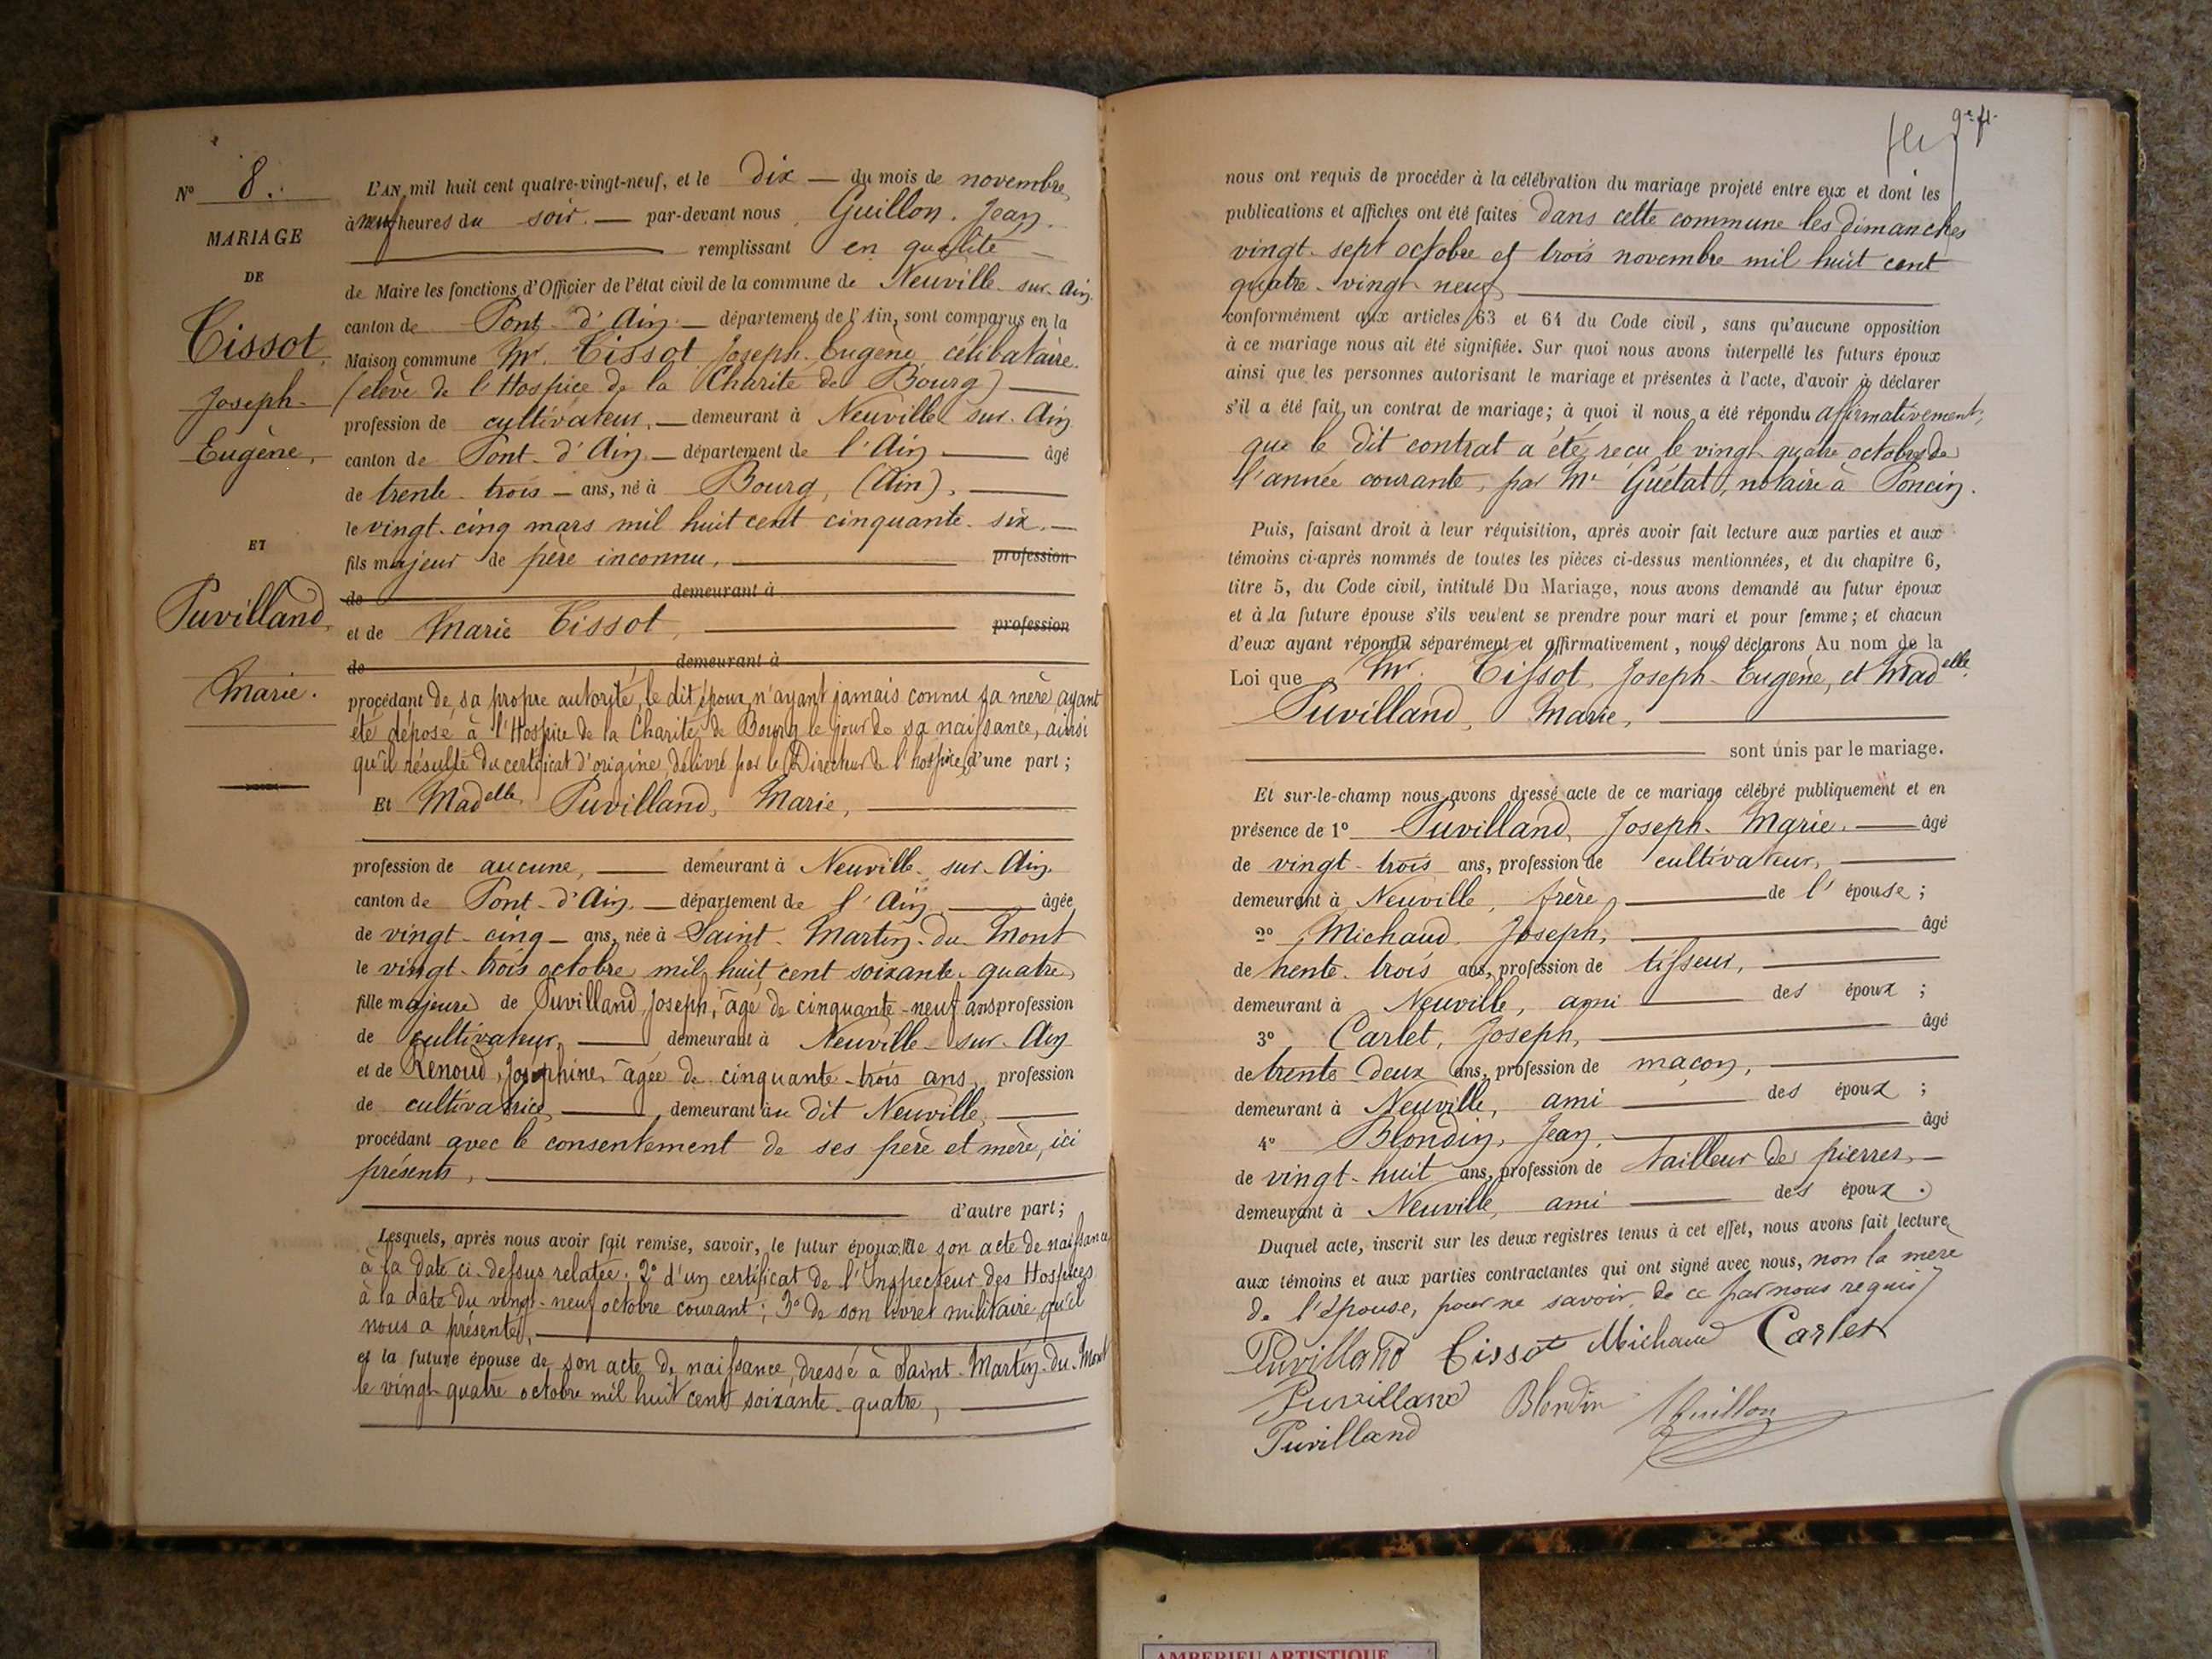 N° 8.
MARIAGE
DE
Tissot,
Joseph-
Eugène,
ET
Puvilland,
Marie.
L'AN mil huit cent quatre-vingt-neuf, et le dix — du mois de novembre
à neuf heures du soir. — par-devant nous, Guillon. Jean.
remplissant en qualité
de Maire les fonctions d'Officier de l'état civil de la commune de Neuville-sur-Ain,
canton de Pont-d'Ain. — département de l'Ain, sont comparus en la
Maison commune Mr. Tissot Joseph-Eugène, célibataire.
(élève de l'Hospice de la Charité de Bourg) —
profession de cultivateur, — demeurant à Neuville sur-Ain
canton de Pont-d'Ain — département de l'Ain — âgé
de trente-trois — ans, né à Bourg, (Ain). —
le vingt-cinq mars mil huit cent cinquante-six. —
fils majeur de père inconnu, — profession
de demeurant à
et de Marie Tissot, — profession
de demeurant à
procédant de sa propre autorité, le dit époux n'ayant jamais connu sa mère, ayant
été déposé à l'Hospice de la Charité de Bourg le jour de sa naissance, ainsi
qu'il résulte du certificat d'origine, délivré par le Directeur de l'hospice, d'une part;
Et Madelle Puvilland, Marie, —
profession de aucune, — demeurant à Neuville-sur-Ain.
canton de Pont-d'Ain. — département de l'Ain. — âgée
de vingt-cinq — ans, née à Saint-Martin-du-Mont
le vingt-trois octobre mil huit cent soixante-quatre,
fille majeure de Puvilland Joseph, âgé de cinquante-neuf ans profession
de cultivateur, — demeurant à Neuville-sur-Ain
et de Renoud, Josephine, âgée de cinquante-trois ans, profession
de cultivatrice, — demeurant au dit Neuville, —
procédant avec le consentement de ses père et mère, ici
présents, —
d'autre part;
Lesquels, après nous avoir fait remise, savoir, le futur époux, 1° de son acte de naissance
à la date ci-dessus relatée; 2° d'un certificat de l'Inspecteur des Hospices
à la date du vingt-neuf octobre courant; 3° de son livret militaire qu'il
nous a présenté, —
et la future épouse de son acte de naissance, dressé à Saint-Martin-du-Mont
le vingt-quatre octobre mil huit cent soixante-quatre, —
nous ont requis de procéder à la célébration du mariage projeté entre eux et dont les
publications et affiches ont été faites dans cette commune les dimanches
vingt-sept octobre et trois novembre mil huit cent
quatre-vingt neuf —
conformément aux articles 63 et 64 du Code civil, sans qu'aucune opposition
à ce mariage nous ait été signifiée. Sur quoi nous avons interpellé les futurs époux
ainsi que les personnes autorisant le mariage et présentes à l'acte, d'avoir à déclarer
s'il a été fait un contrat de mariage; à quoi il nous a été répondu affirmativement;
que le dit contrat a été reçu le vingt quatre octobre de
l'année courante, par Mr Guétat, notaire à Poncin.
Puis, faisant droit à leur réquisition, après avoir fait lecture aux parties et aux
témoins ci-après nommés de toutes les pièces ci-dessus mentionnées, et du chapitre 6,
titre 5, du Code civil, intitulé Du Mariage, nous avons demandé au futur époux
et à la future épouse s'ils veulent se prendre pour mari et pour femme; et chacun
d'eux ayant répondu séparément et affirmativement, nous déclarons Au nom de la
Loi que Mr. Tissot, Joseph-Eugène, et Madelle.
Puvilland, Marie, —
sont unis par le mariage.
Et sur-le-champ nous avons dressé acte de ce mariage célébré publiquement et en
présence de 1° Puvilland, Joseph-Marie. — âgé
de vingt-trois ans, profession de cultivateur, —
demeurant à Neuville, frère, — de l'épouse;
2° Michaud Joseph, — âgé
de trente-trois ans, profession de tisseur, —
demeurant à Neuville, ami — des époux;
3° Carlet, Joseph, — âgé
de trente-deux ans, profession de maçon, —
demeurant à Neuville, ami — des époux;
4° Blondin, Jean, — âgé
de vingt-huit ans, profession de tailleur de pierres, —
demeurant à Neuville, ami — des époux.
Duquel acte, inscrit sur les deux registres tenus à cet effet, nous avons fait lecture
aux témoins et aux parties contractantes qui ont signé avec nous, non la mère
de l'épouse, pour ne savoir, de ce par nous requis
Puvilland Tissot Michaud Carlet
Puvilland Blondin Guillon
Puvilland
AMBERIEU ARTISTIQUE